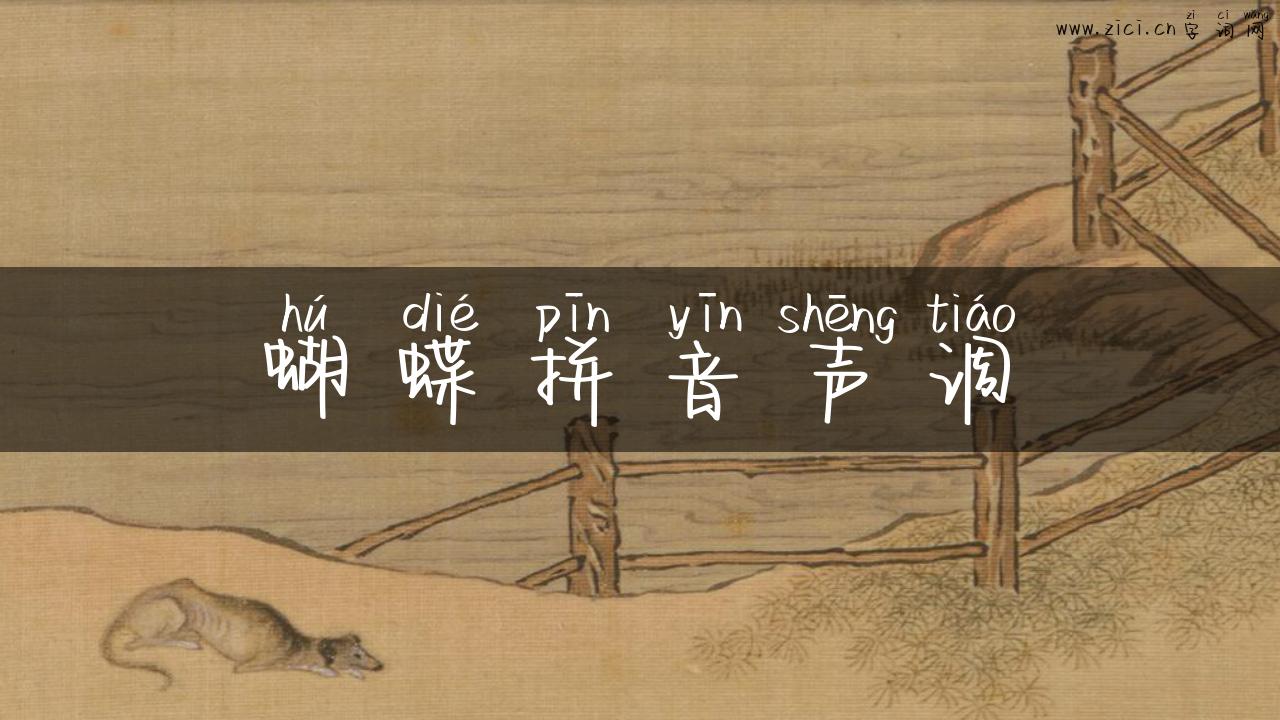 zi ci wang
www.zici.cn 字词网
hú dié pīn yīn shēng tiáo
蝴蝶拼音声调